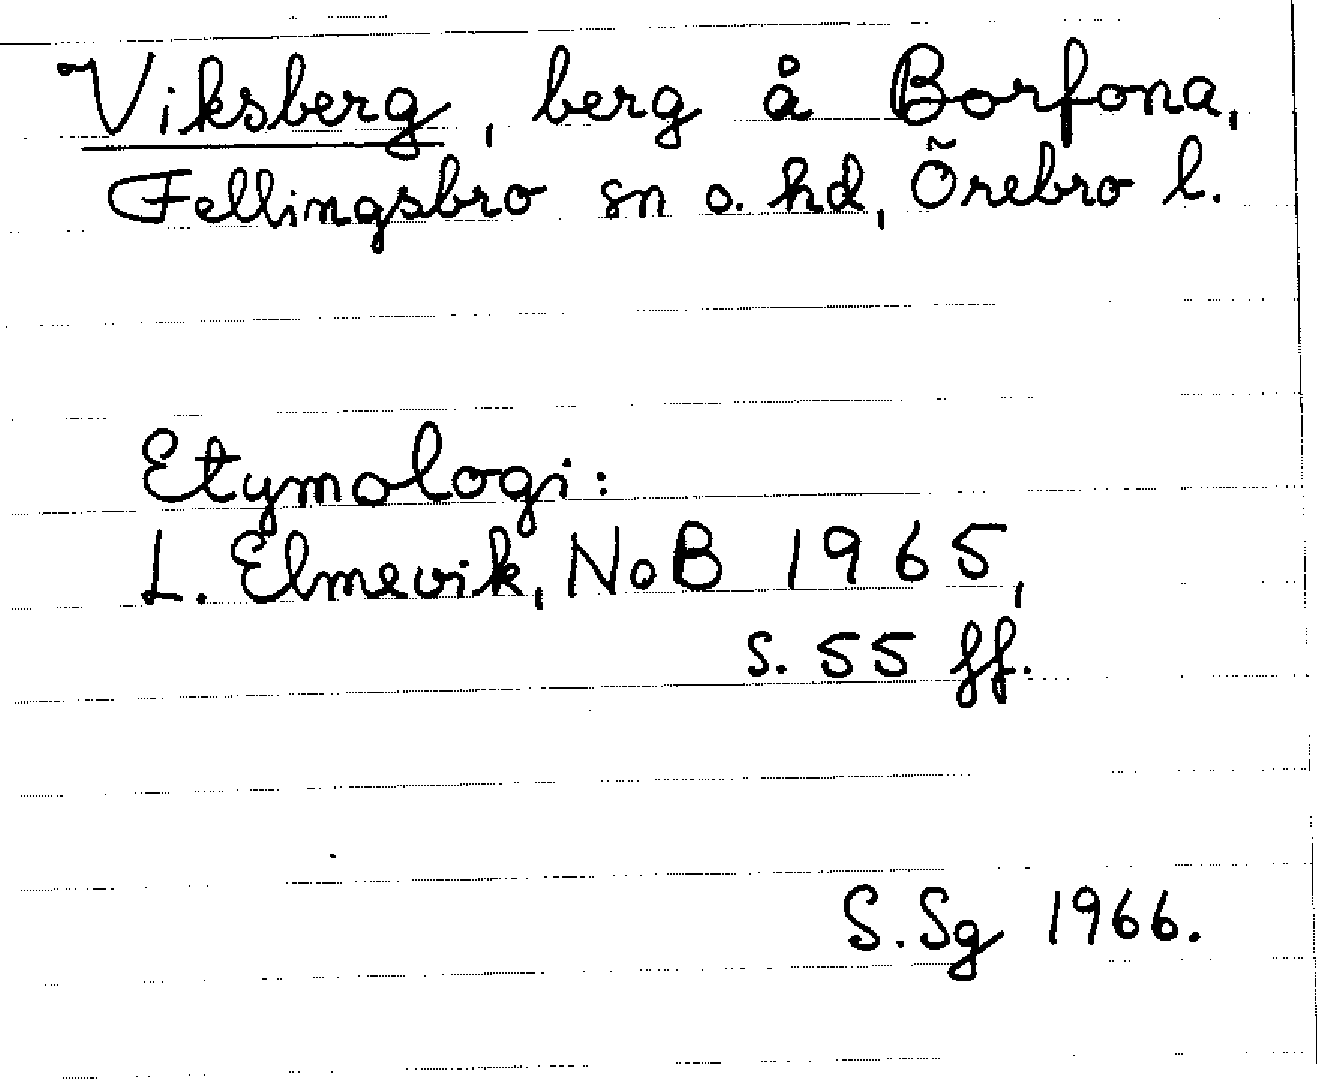 Viksberg, berg å Borfona,
Fellingsbro sn o. hd, Örebro l.
Etymologi:
L. Elmevik, NoB 1965,
s. 55 ff.
S. Sg 1966.